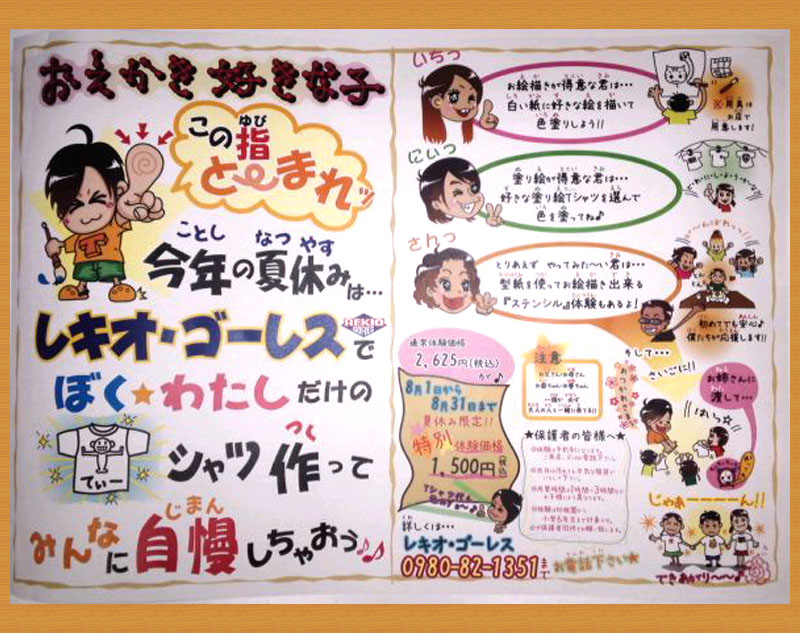 おえかき好きな子
この指
ゆび
と〜まれッ
ことし なつ やす
今年の夏休みは…
レキオ・ゴーレスで
ぼく★わたしだけの
てぃー
つく
シャツ作って
じまん
みんなに自慢しちゃおう♪♪
いちっ
お絵描きが得意な君は…
白い紙に好きな絵を描いて
色塗りしよう!!
※用具は
お店で
用意します!
にぃっ
塗り絵が得意な君は…
好きな塗り絵Tシャツを選んで
色を塗ってね♪
さんっ
とりあえず やってみた〜い君は…
型紙を使ってお絵描き出来る
『ステンシル』体験もあるよ!
初めてでも安心♪
僕たちが応援します!!
通常体験価格
2,625円(税込)
が♪
8月1日から
8月31日まで
夏休み限定!!
特別体験価格
1,500円税込
注意
お父さん・お母さん
一緒に来てね!!
そして…
さいごに!!
お姉さんに
渡して…
はいっ☆
★保護者の皆様へ★
じゃあーーーーん!!
できあがり〜〜♪
詳しくは…
レキオ・ゴーレス
0980-82-1351まで
お電話下さい★